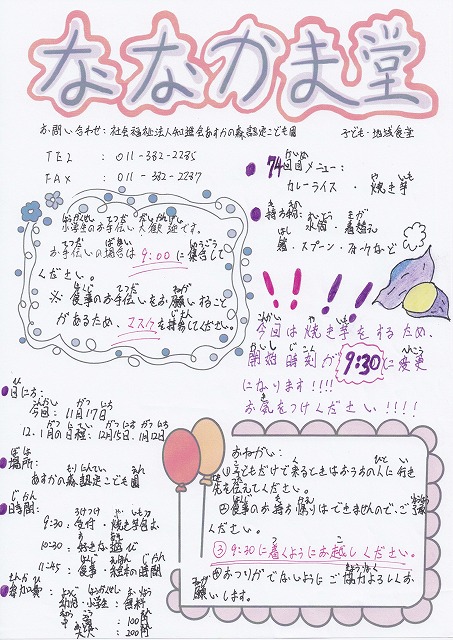 ななかま堂
お問い合わせ：社会福祉法人和進会あすかの森認定こども園
子ども・地域食堂
TEL : 011-382-2285
FAX : 011-382-2287
74回目メニュー：
カレーライス ・ 焼き芋
持ち物： 水筒・着替え
箸・スプーン・フォークなど
小学生のお手伝い大歓迎です。
お手伝いの場合は 9:00 に集合して
ください。
※ 食事のお手伝いをお願いすること
があるため、マスクを持参してください。
今回は焼き芋をするため、
開始時刻が 9:30 に変更
になります!!!!
お気をつけください!!!!
日にち：
今回：11月17日
12.1月の日程：12月15日.1月12日
場所：
あすかの森認定こども園
時間：
9:30：受付・焼き芋
10:30：好きな遊び
11:45：食事・絵本の時間
参加費：
幼児・小学生：無料
100円
大人：200円
おねがい：
①子どもだけで来るときはおうちの人に行き
先を伝えてください。
②食事のお持ち帰りはできませんので、ご
ください。
③9:30に着くようにお越しください。
④おつりがでないようにご協力よろしくお
願いします。